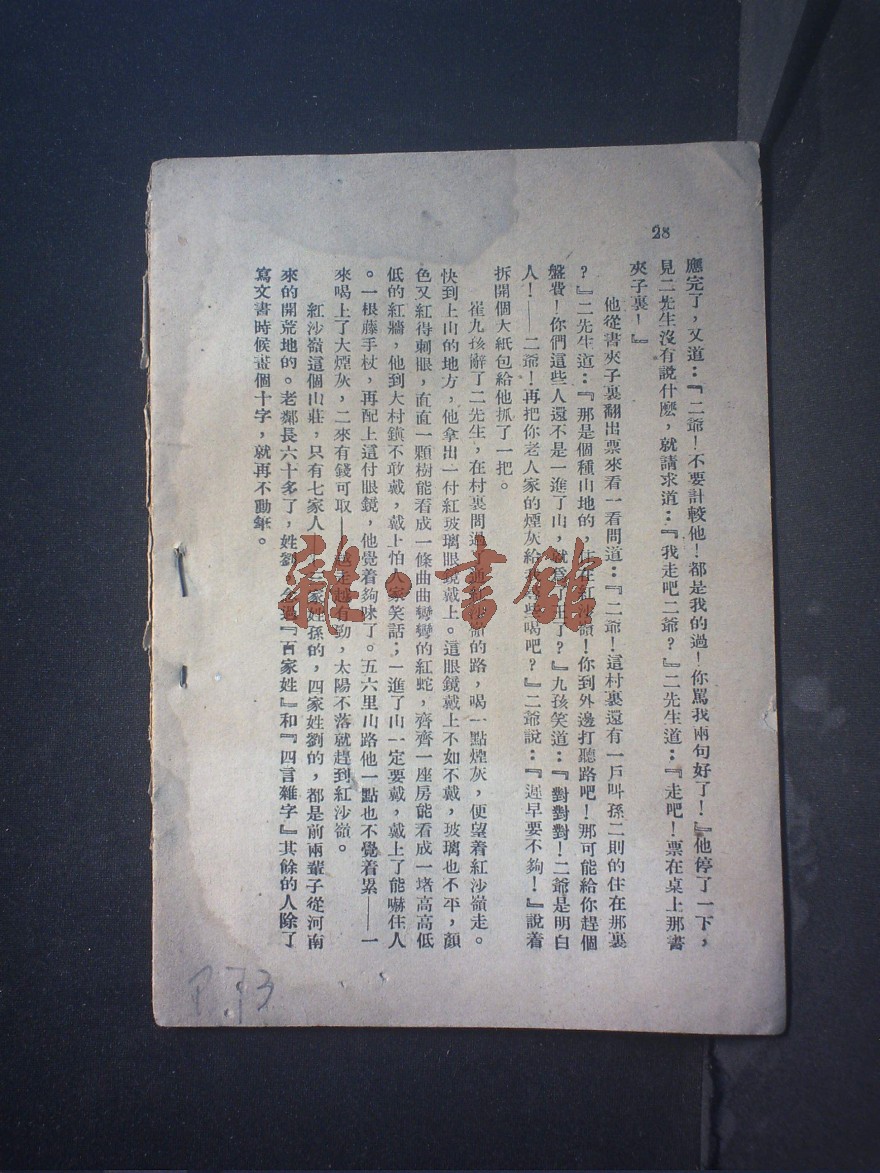 28
應完了，又道：『二爺！不要計較他！都是我的過！你罵我兩句好了！』他停了一下，
見二先生沒有說什麽，就請求道：『我走吧二爺？』二先生道：『走吧！票在桌上那書
夾子裏！』
他從書夾子裏翻出票來看一看問道：『二爺！這村裏還有一戶叫孫二則的住在那裏
？』二先生道：『那是個種山地的，住在紅沙嶺！你到外邊打聽路吧！那可能給你趕個
盤費！你們這些人還不是一進了山，就爲了王了？』九孩笑道：『對對對！二爺是明白
人！——二爺！再把你老人家的煙灰給我些喝吧？』二爺說：『遲早要不夠！』說着
拆開個大紙包給他抓了一把。
崔九孩辭了二先生，在村裏問過了通紅沙嶺的路，喝一點煙灰，便望着紅沙嶺走。
快到上山的地方，他拿出一付紅玻璃眼鏡戴上。這眼鏡戴上不如不戴，玻璃也不平，顏
色又紅得刺眼，直直一顆樹能看成一條曲曲彎彎的紅蛇，齊齊一座房能看成一堵高高低
低的紅牆，他到大村鎮不敢戴，戴上怕人家笑話；一進了山一定要戴，戴上了能嚇住人
。一根藤手杖，再配上這付眼鏡，他覺着夠味了。五六里山路他一點也不覺着累——一
來喝上了大煙灰，二來有錢可取——越走越有勁，太陽不落就趕到紅沙嶺。
紅沙嶺這個山莊，只有七家人，三家姓孫的，四家姓劉的，都是前兩輩子從河南
來的開荒地的。老鄰長六十多了，姓劉，念過『百家姓』和『四言雜字』其餘的人除了
寫文書時候畫個十字，就再不動筆。
雜·書館
P.73